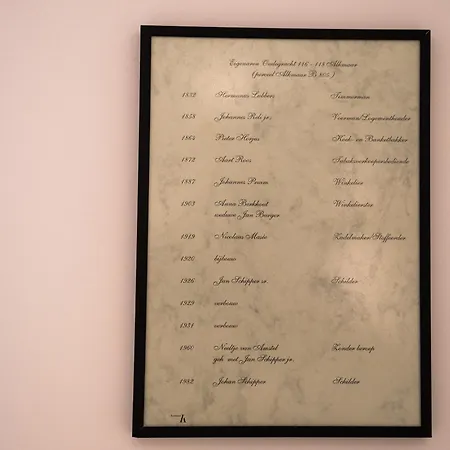 Eigenaren Oudegracht 116 - 118 Alkmaar
(perceel Alkmaar B 805)
1832 Harmanus Lubbers Timmerman
1858 Johannes Rols jr. Voerman/Logementhouder
1864 Pieter Kok- en Banketbakker
1872 Aart Roos Tabaksverkoopersbediende
1887 Johannes Winkelier
1903 Anna Berkhout Winkelierster
weduwe Jan Burger
1919 Nicolaas Zadelmaker/Stoffeerder
1920 bijbouw
1926 Jan Schipper sr. Schilder
1929 verbouw
1931 verbouw
1960 Neeltje van Amstel Zonder beroep
geh. met Jan Schipper jr.
1982 Johan Schipper Schilder